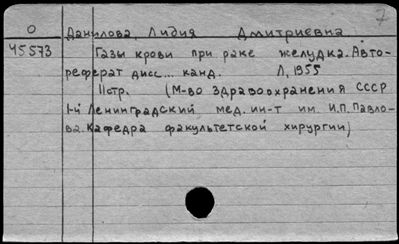 7
О Данилова, Лидия Дмитриевна
45573 Газы крови при раке желудка. Авто-
реферат дисс... канд. Л, 1955
11стр. (М-во здравоохранения СССР
1-й Ленинградский мед. ин-т им. И.П. Павло-
ва. Кафедра факультетской хирургии)